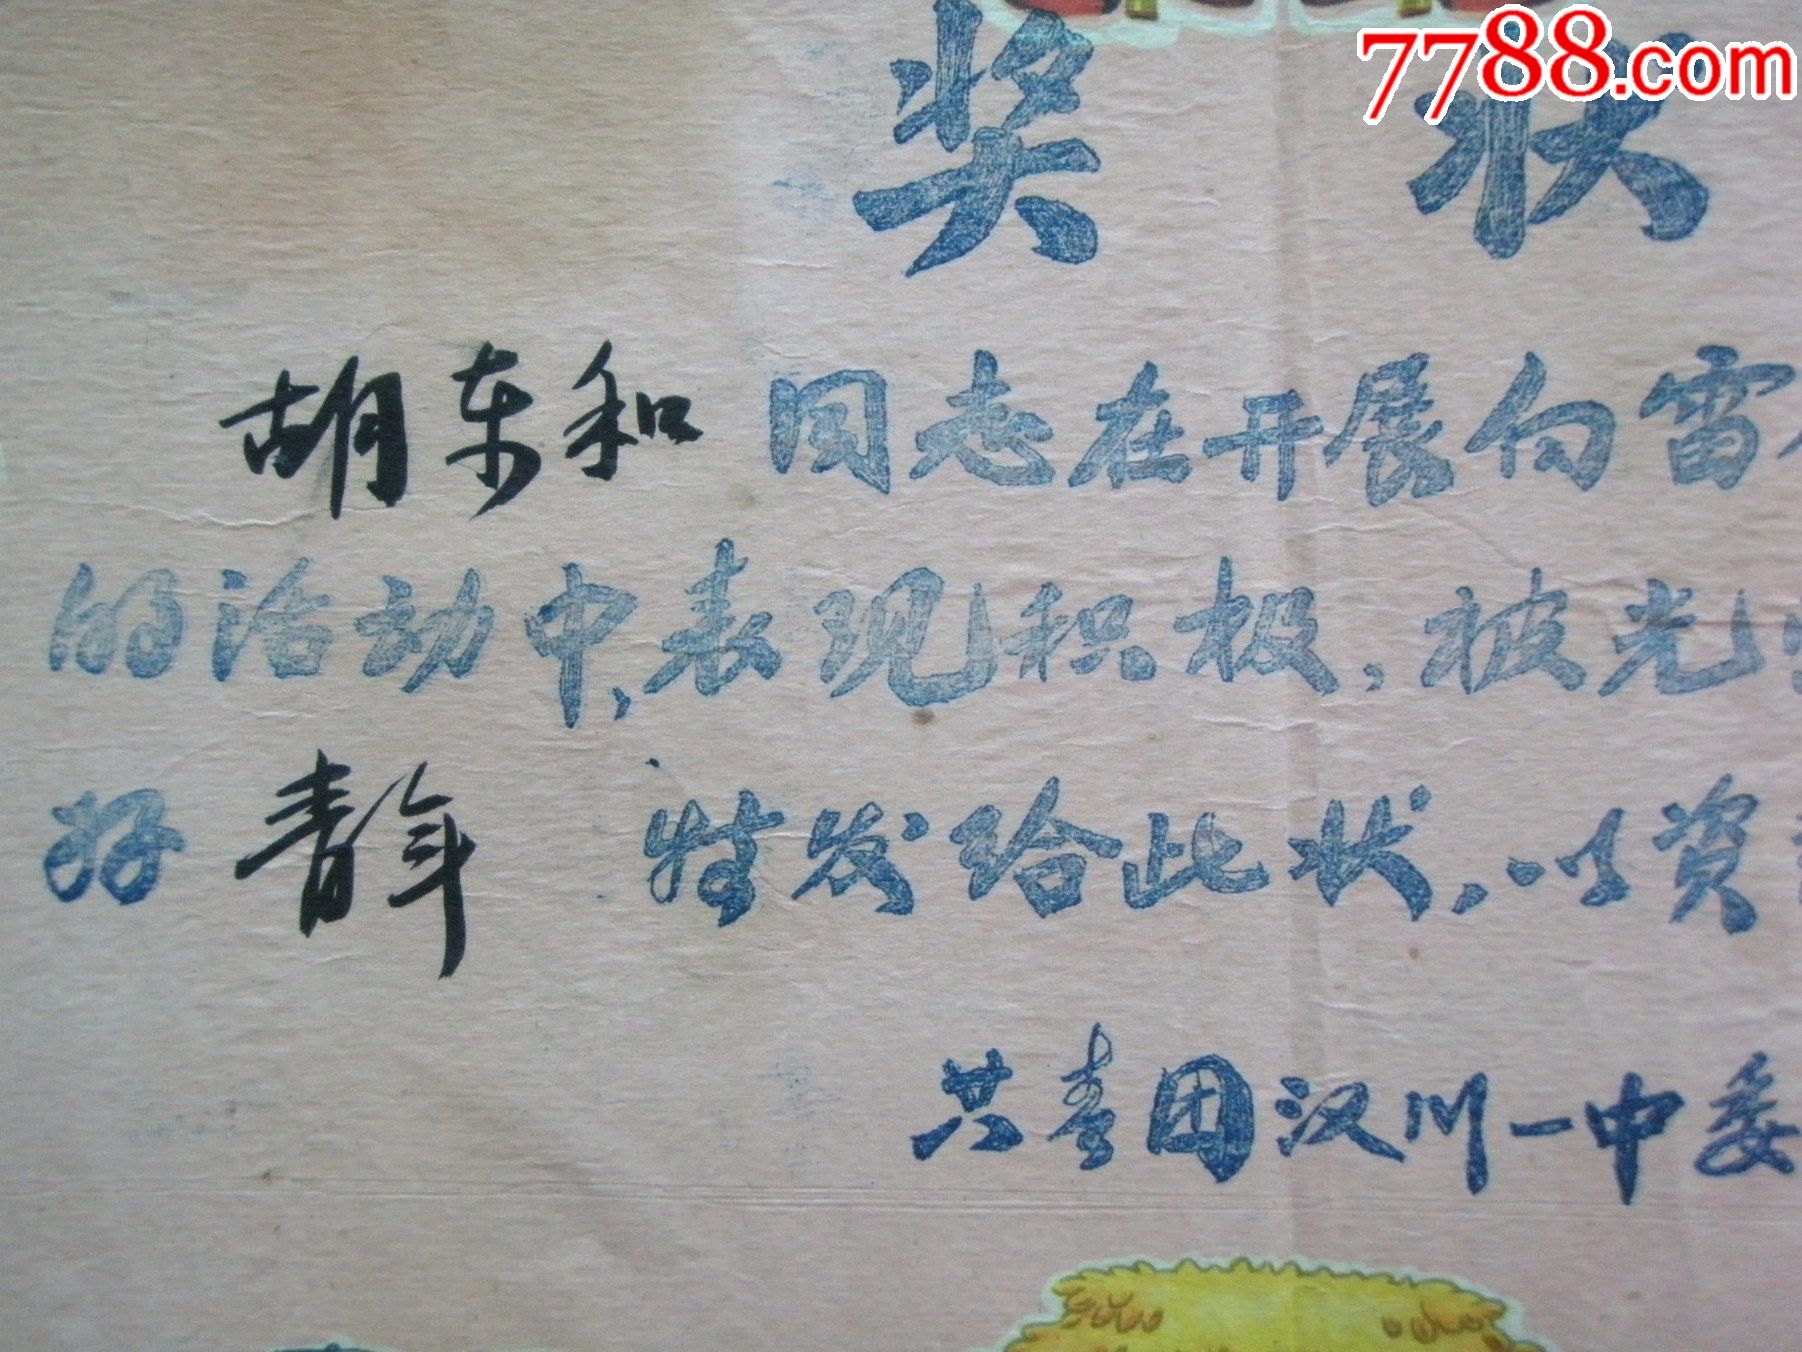 7788.com
奖状
胡东和同志在开展向雷
的活动中,表现积极,被光
好青年 特发给此状,以资
共青团汉川一中委